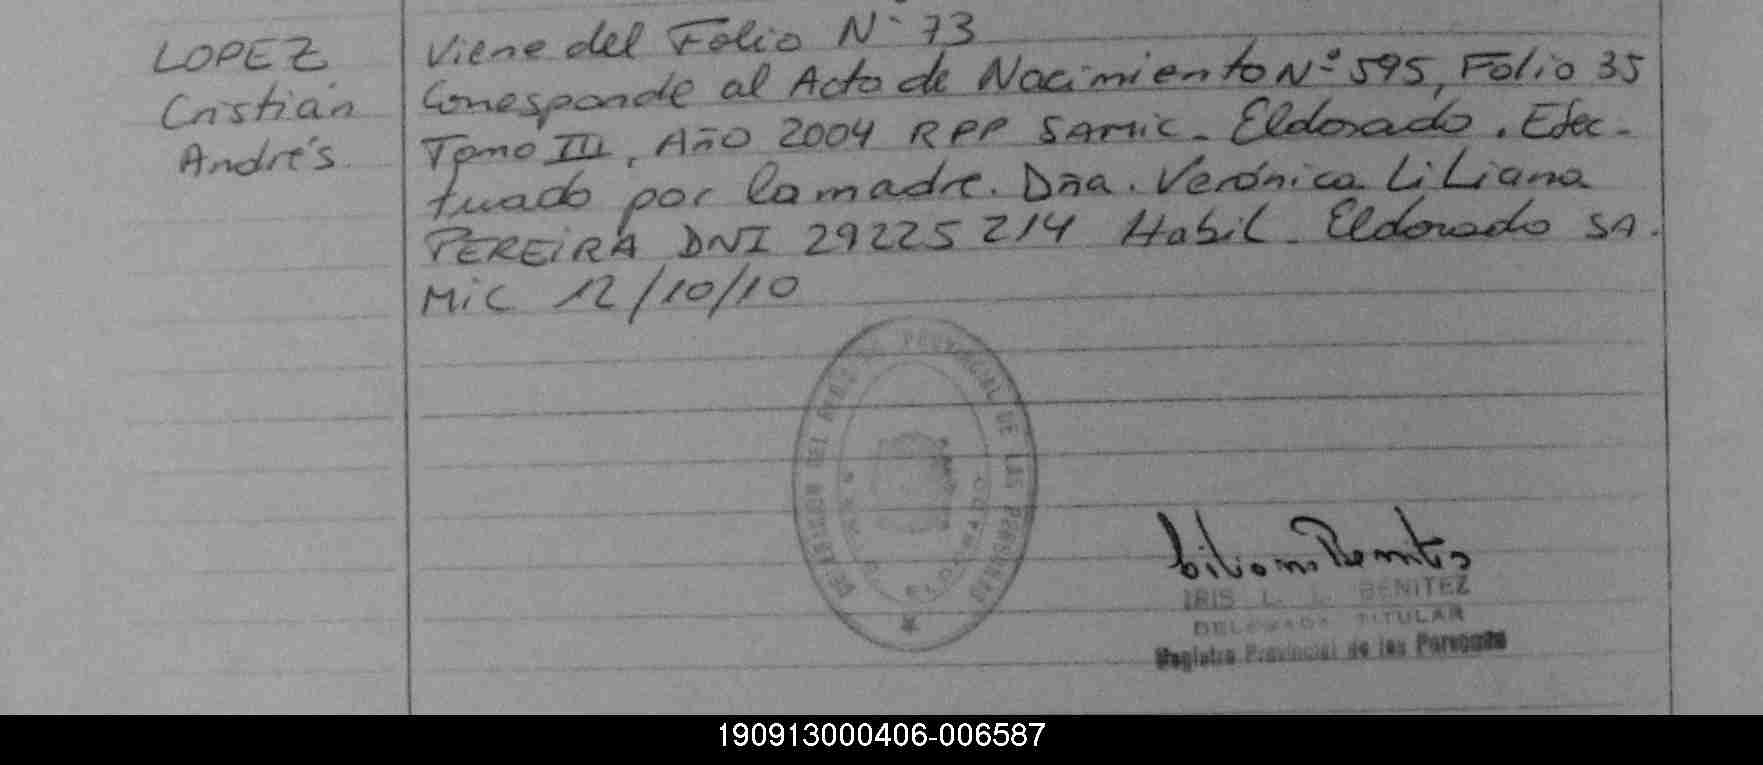 LOPEZ
Cristian
Andrés
Viene del Folio Nº 73
Corresponde al Acta de Nacimiento Nº 595, Folio 35
Tomo III, Año 2004 RPP SAMIC - Eldorado. Efec-
tuado por la madre. Dña. Verónica Liliana
PEREIRA DNI 29225214 Habil. Eldorado SA.
MIC 12/10/10
PROVINCIAL DE LAS PERSONAS
ELDORADO
IRIS L. L. BENITEZ
DELEGADA TITULAR
Registro Provincial de las Personas
190913000406-006587